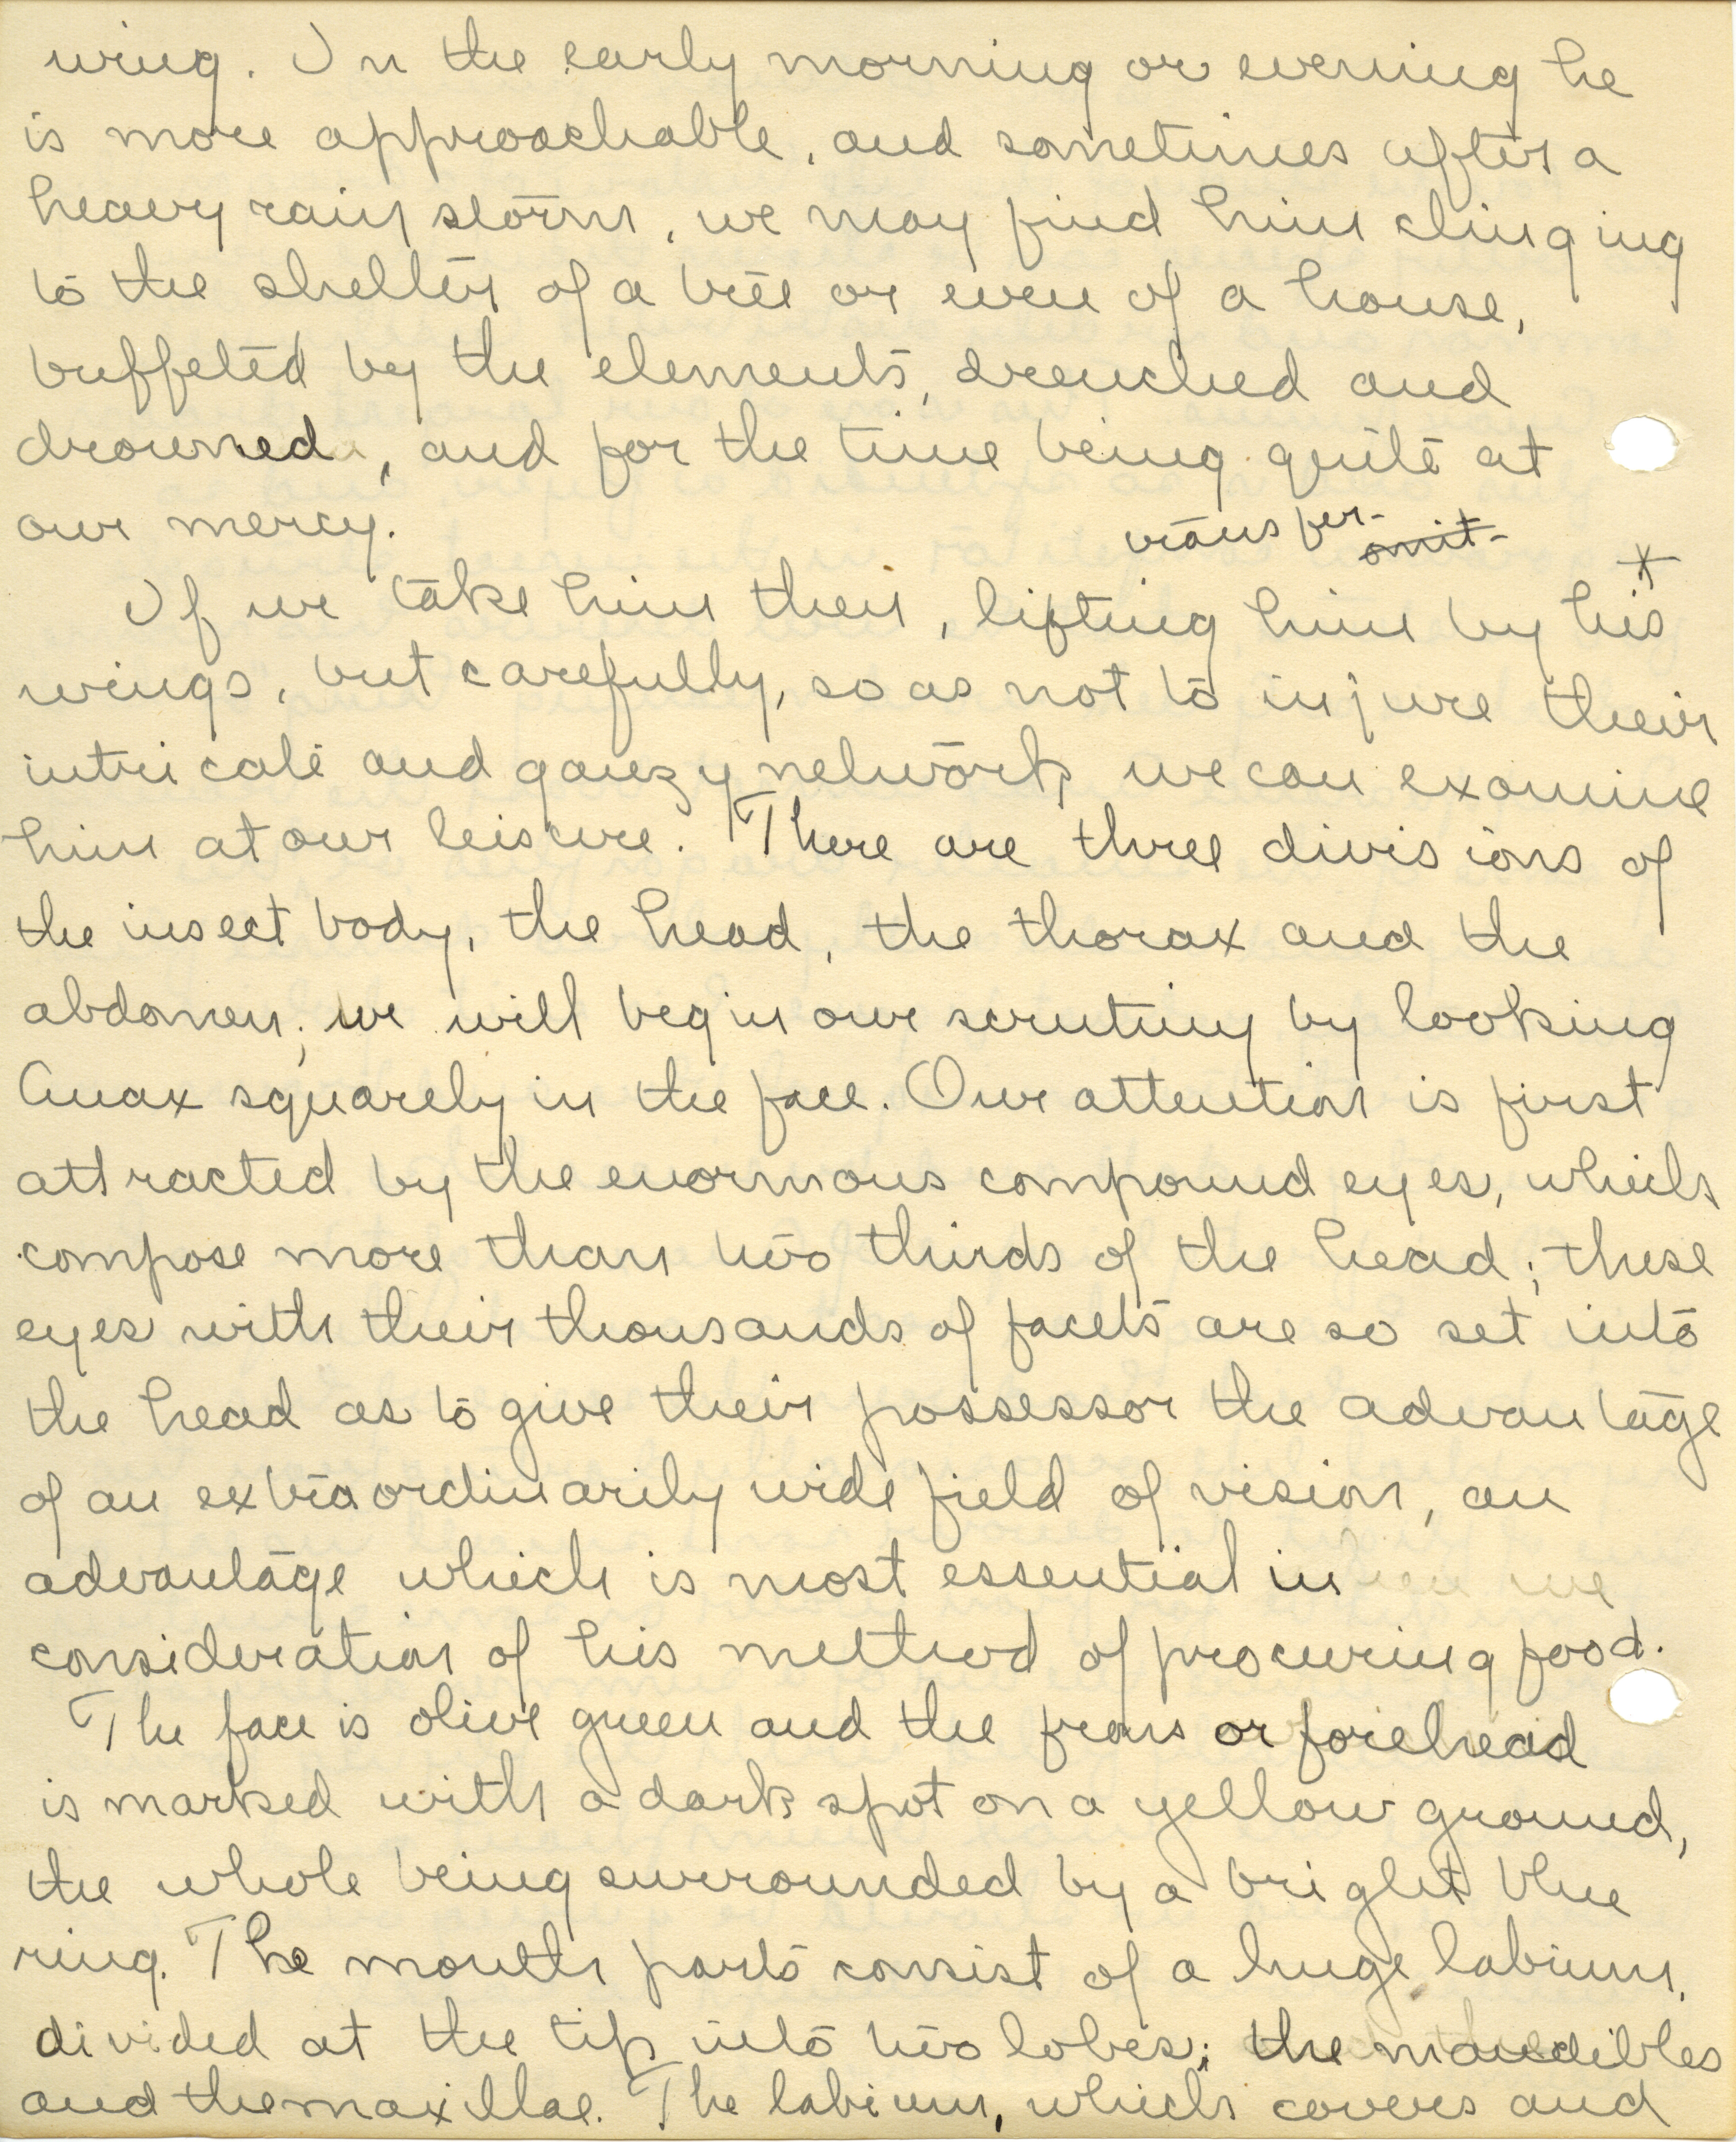 wing. In the early morning or evening he
is more approachable, and sometimes after a
heavy rain storm, we may find him clinging
to the shelter of a tree or even of a house,
buffeted by the elements, drenched and
drowned, and for the time being quite at
our mercy.
transfer- omit-
*
If we take him then, lifting him by his
wings, but carefully, so as not to injure their
intricate and gauzy network, we can examine
him at our leisure. There are three divisions of
the insect body, the head, the thorax and the
abdomen; we will begin our scrutiny by looking
Anax squarely in the face. Our attention is first
attracted by the enormous compound eyes, which
compose more than two thirds of the head; these
eyes with their thousands of facets are so set into
the head as to give their possessor the advantage
of an extraordinarily wide field of vision, an
advantage which is most essential in
consideration of his method of procuring food.
The face is olive green and the frons or forehead
is marked with a dark spot on a yellow ground,
the whole being surrounded by a bright blue
ring. The mouth parts consist of a huge labium,
divided at the tip into two lobes; the mandibles
and the maxillae. The labium, which covers and